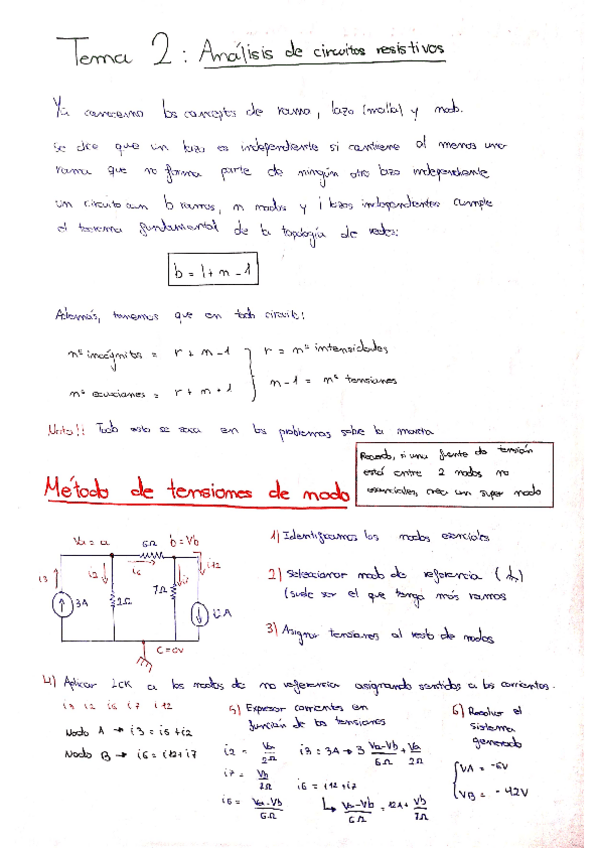 Tema 2: Análisis de circuitos resistivos
Ya conocemos los conceptos de rama, lazo (malla) y nodo.
se dice que un lazo es independiente si contiene al menos una
rama que no forma parte de ningún otro lazo independiente
un circuito con b ramas, n nodos y l lazos independientes cumple
el teorema fundamental de la topología de redes:
b = l + n - 1
Además, tenemos que en todo circuito:
nº incógnitas = r + n - 1
nº ecuaciones = r + n + 1
r = nº intensidades
n-1 = nº tensiones
Nota!! Todo esto se saca en los problemas sobre la marcha
Recuerda, si una fuente de tensión
está entre 2 nodos no
esenciales, crea un super nodo
Método de tensiones de nodo
Va = a 6Ω b = Vb
i3 i2 i6 i7 i12
3A 2Ω 7Ω 12A
C = 0V
1) Identificamos los nodos esenciales
2) Seleccionar nodo de referencia
(suele ser el que tenga más ramas
3) Asignar tensiones al resto de nodos
4) Aplicar LCK a los nodos de no referencia asignando sentidos a las corrientes.
i3 i2 i6 i7 i12
Nodo A → i3 = i6 + i2
Nodo B → i6 = i12 + i7
5) Expresar corrientes en
función de las tensiones
i2 = Va/2Ω
i7 = Vb/7Ω
i6 = Va-Vb/6Ω
i3 = 3A → 3 Va-Vb/6Ω + Va/2Ω
i6 = i12 + i7
↳ Va-Vb/6Ω = 12A + Vb/7Ω
6) Resolver el
sistema
generado
VA = -6V
VB = -42V